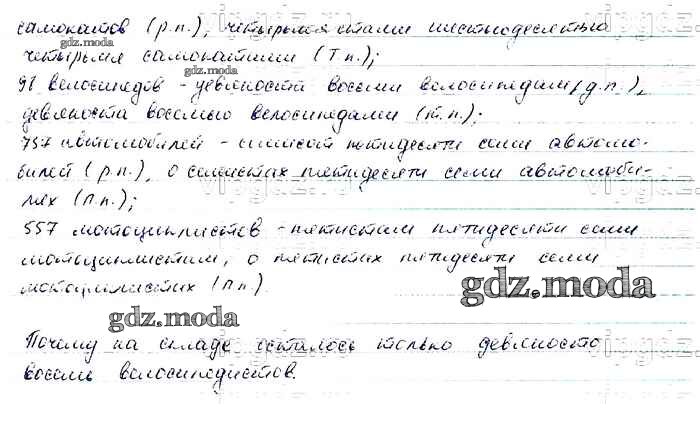 самокатов (р.п.), четырьмястами шестьюдесятью
gdz.moda
четырьмя самокатами (Т.п.);
gdz.moda
98 велосипедов - девяноста восьми велосипедам (д.п.),
девяноста восьмью велосипедами (т.п.);
757 автомобилей - семисот пятидесяти семи автомо-
билей (р.п.), о семистах пятидесяти семи автомоби-
лях (п.п.);
557 мотоциклистов - пятистам пятидесяти семи
мотоциклистам, о пятистах пятидесяти семи
мотоциклистах (п.п.).
gdz.moda
gdz.moda
Почему на складе осталось только девяносто
восемь велосипедистов.